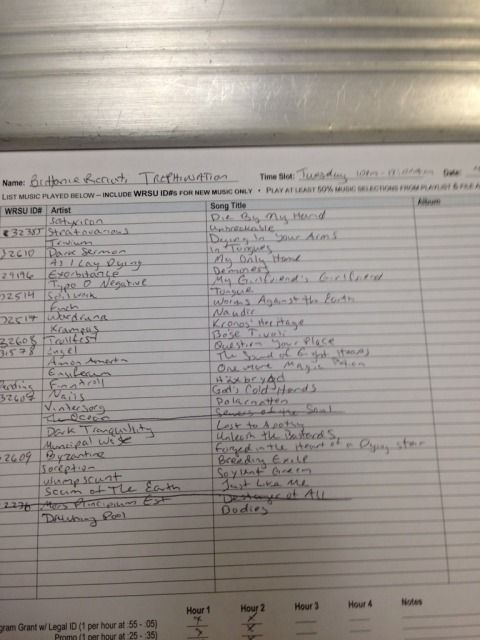 Name: Brittanie Recruit, TREPHINATION Time Slot: Tuesday 10pm - Date:
LIST MUSIC PLAYED BELOW – INCLUDE WRSU ID#S FOR NEW MUSIC ONLY • PLAY AT LEAST 50% MUSIC SELECTIONS FROM PLAYLIST &
WRSU ID# Artist Song Title Album
Satyricon Die By My Hand
32385 Stratovarious Unbreakable
Trivium Dying In Your Arms
32610 Dark Sermon In Tongues
As I Lay Dying My Only Home
29196 Exorbitance Demones
Typo O Negative My Girlfriend's Girlfriend
32514 Soilwork Tongue
Finch Worms Against the Earth
32517 Wardruna Naudir
Krampus Kronos' Heritage
32608 Trollfest Bose Tivoli
31578 Engel Question Your Place
Amon Amarth The Sound of Eight Hooves
Ensiferum One More Magic Potion
Pending Finntroll Häxbrygd
32607 Nails God's Cold Hands
Vintersorg Polarnatten
The Ocean Sewers of the Soul
Dark Tranquillity Lost to Apathy
Municipal Waste Unleash the Bastards
32609 Byzantine Forged in the Heart of a Dying Star
Soreption Breeding Exile
Wumpscunt Soylent Green
Scum of The Earth Just Like Me
2276 Mors Principium Est Destroyer of All
Drowning Pool Bodies
Hour 1 Hour 2 Hour 3 Hour 4 Notes
gram Grant w/ Legal ID (1 per hour at :55 - :05) X X
Promo (1 per hour at :25 - :35) X X